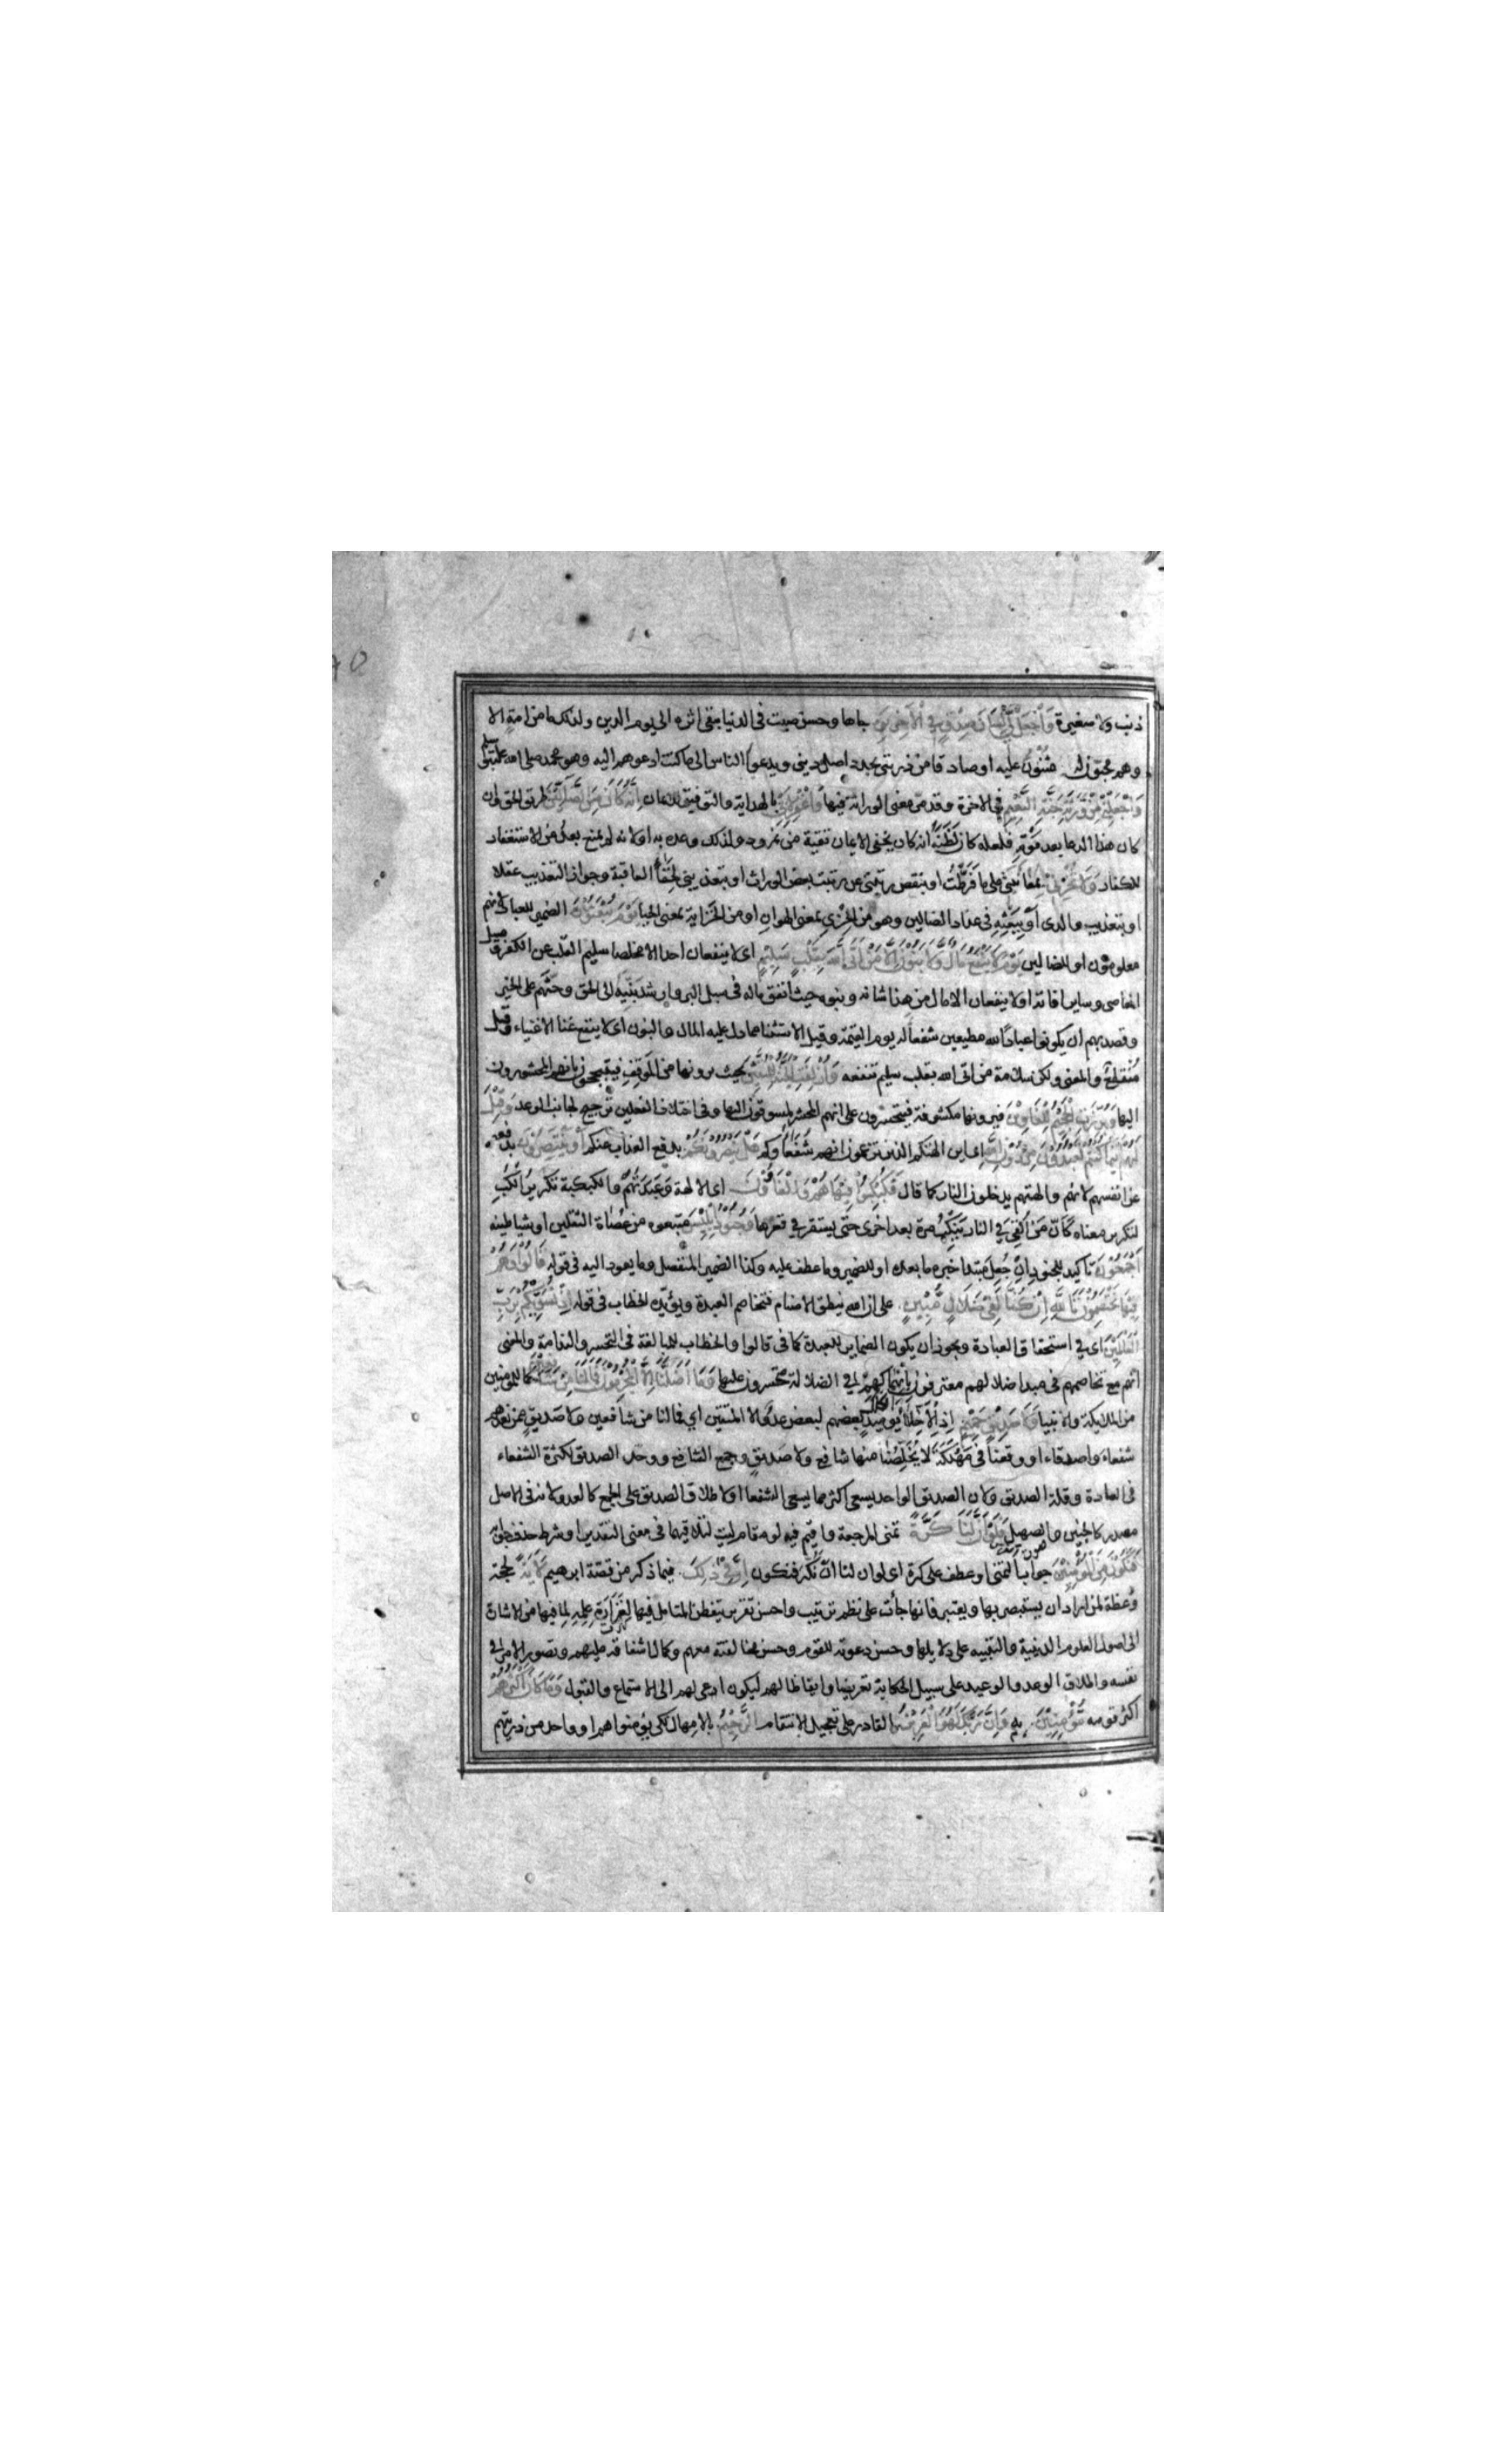 ذنب ولا صغيرة وَاجْعَلْ لِي لِسَانَ صِدْقٍ فِي الْآخِرِينَ جاها وحسن صيت في الدنيا يبقى اثره الى يوم الدين ولذلك ما من امة الا
وهم محبون له مثنون عليه او صادقا من ذريتي يجدد اصل ديني ويدعو الناس الى ما كنت ادعوهم اليه وهو محمد صلى الله عليه وسلم
وَاجْعَلْنِي مِنْ وَرَثَةِ جَنَّةِ النَّعِيمِ في الاخرة وقد مر معنى الوراثة فيها وَاغْفِرْ لِأَبِي بالهداية والتوفيق للايمان إِنَّهُ كَانَ مِنَ الضَّالِّينَ طريق الحق وان
كان هذا الدعا بعد موته فلعله كان لظنه انه كان يخفي الايمان تقية من نمرود ولذلك وعده به او لانه لم يمنع بعد من الاستغفار
للكفار وَلَا تُخْزِنِي بمعاتبتي على ما فرطت او بنقص رتبتي عن رتبة بعض الوراث او بتعذيبي لخفاء العاقبة وجواز التعذيب عقلا
او بتعذيب والدى او ببعثه في عداد الضالين وهو من الخزي بمعنى الهوان او من الخزاية بمعنى الحيا يَوْمَ يُبْعَثُونَ الضمير للعباد لانهم
معلومون او للضالين يَوْمَ لَا يَنْفَعُ مَالٌ وَلَا بَنُونَ إِلَّا مَنْ أَتَى اللَّهَ بِقَلْبٍ سَلِيمٍ اى لا ينفعان احدا الا مخلصا سليم القلب عن الكفر وميل
المعاصى وسائر افاته او لا ينفعان الا مال من هذا شانه وبنوه حيث انفق ماله فى سبيل البر وارشد بنيه الى الحق وحثهم على الخير
وقصد بهم ان يكونوا عبادا لله مطيعين شفعا له يوم القيمة وقيل الاستثنا مما دل عليه المال والبنون اى لا ينفع غنا الا غناء وقيل
منقطع والمعنى ولكن سلامة من اتى الله بقلب سليم تنفعه وَأُزْلِفَتِ الْجَنَّةُ لِلْمُتَّقِينَ بحيث يرونها من الموقف فيتبجحون بانهم المحشورون
اليها وَبُرِّزَتِ الْجَحِيمُ لِلْغَاوِينَ فيرونها مكشوفة فيتحسرون على انهم المسوقون اليها وفي اختلاف الفعلين ترجيح لجانب الوعد وَقِيلَ
لَهُمْ أَيْنَمَا كُنْتُمْ تَعْبُدُونَ مِنْ دُونِ اللَّهِ اى اين الهتكم الذين تزعمون انهم شفعاوكم هَلْ يَنْصُرُونَكُمْ بدفع العذاب عنكم أَوْ يَنْتَصِرُونَ بدفعه
عن انفسهم لانهم والهتهم يدخلون النار كما قال فَكُبْكِبُوا فِيهَا هُمْ وَالْغَاوُونَ اى الالهة وعبدتهم والكبكبة تكرير الكب
لتكرير معناه كان من القي في النار ينكب مرة بعد اخرى حتى يستقر في قعرها وَجُنُودُ إِبْلِيسَ متبعوه من عصاة الثقلين او شياطينه
أَجْمَعُونَ تاكيد للجنود ان جعل مبتدا خبره ما بعده او للضمير وما عطف عليه وكذا الضمير المنفصل وما يعود اليه في قوله قَالُوا وَهُمْ
فِيهَا يَخْتَصِمُونَ تَاللَّهِ إِنْ كُنَّا لَفِي ضَلَالٍ مُبِينٍ على ان الله ينطق الاصنام فتخاصم العبدة ويؤيده الخطاب في قوله إِذْ نُسَوِّيكُمْ بِرَبِّ
الْعَالَمِينَ اى في استحقاق العبادة ويجوز ان يكون الضماير للعبدة كما في قالوا والخطاب للمبالغة في التحسر والندامة والمعنى
انهم مع تخاصمهم في مبدا ضلالهم معترفون بانهماكهم في الضلالة متحسرون عليها وَمَا أَضَلَّنَا إِلَّا الْمُجْرِمُونَ فَمَا لَنَا مِنْ شَافِعِينَ كما للمؤمنين
من الملايكة والانبيا وَلَا صَدِيقٍ حَمِيمٍ اذ الاخلاء يومئذ بعضهم لبعض عدو الا المتقين اي فما لنا من شافعين ولا صديق ممن نعدهم
شفعاء واصدقاء او وقعنا في مهلكة لا يخلصنا منها شافع ولا صديق وجمع الشافع ووحد الصديق لكثرة الشفعاء
فى العادة وقلة الصديق ولان الصديق الواحد يسعى اكثر مما يسعى الشفعا او لاطلاق الصديق على الجمع كالعدو لانه في الاصل
مصدر كالحنين والصهيل فَلَوْ أَنَّ لَنَا كَرَّةً تمنى للرجعة واقيم فيه لو مقام ليت لتلاقيهما في معنى التقدير او شرط حذف جوابه
فَنَكُونَ مِنَ الْمُؤْمِنِينَ جواب التمني او عطف على كرة اى لو ان لنا ان نكر فنكون إِنَّ فِي ذَلِكَ فيما ذكر من قصة ابرهيم لَآيَةً لحجة
وعظة لمن اراد ان يستبصر بها ويعتبر فانها جأت على نظم ترتيب واحسن تقرير يتفطن المتامل فيها لغزارة علمه لما فيها من الاشارة
الى اصول العلوم الدينية والتنبيه على دلايلها وحسن دعوته للقوم وحسن مخالفته معهم وكمال اشفاقه عليهم وتصور الامر في
نفسه واطلاق الوعد والوعيد على سبيل الحكاية تعريضا وايقاظا لهم ليكون ادعى لهم الى الاستماع والقبول وَمَا كَانَ أَكْثَرُهُمْ
اكثر قومه مُؤْمِنِينَ به وَإِنَّ رَبَّكَ لَهُوَ الْعَزِيزُ القادر على تعجيل الانتقام الرَّحِيمُ بالامهال لكى يؤمنوا هم او واحد من ذريتهم